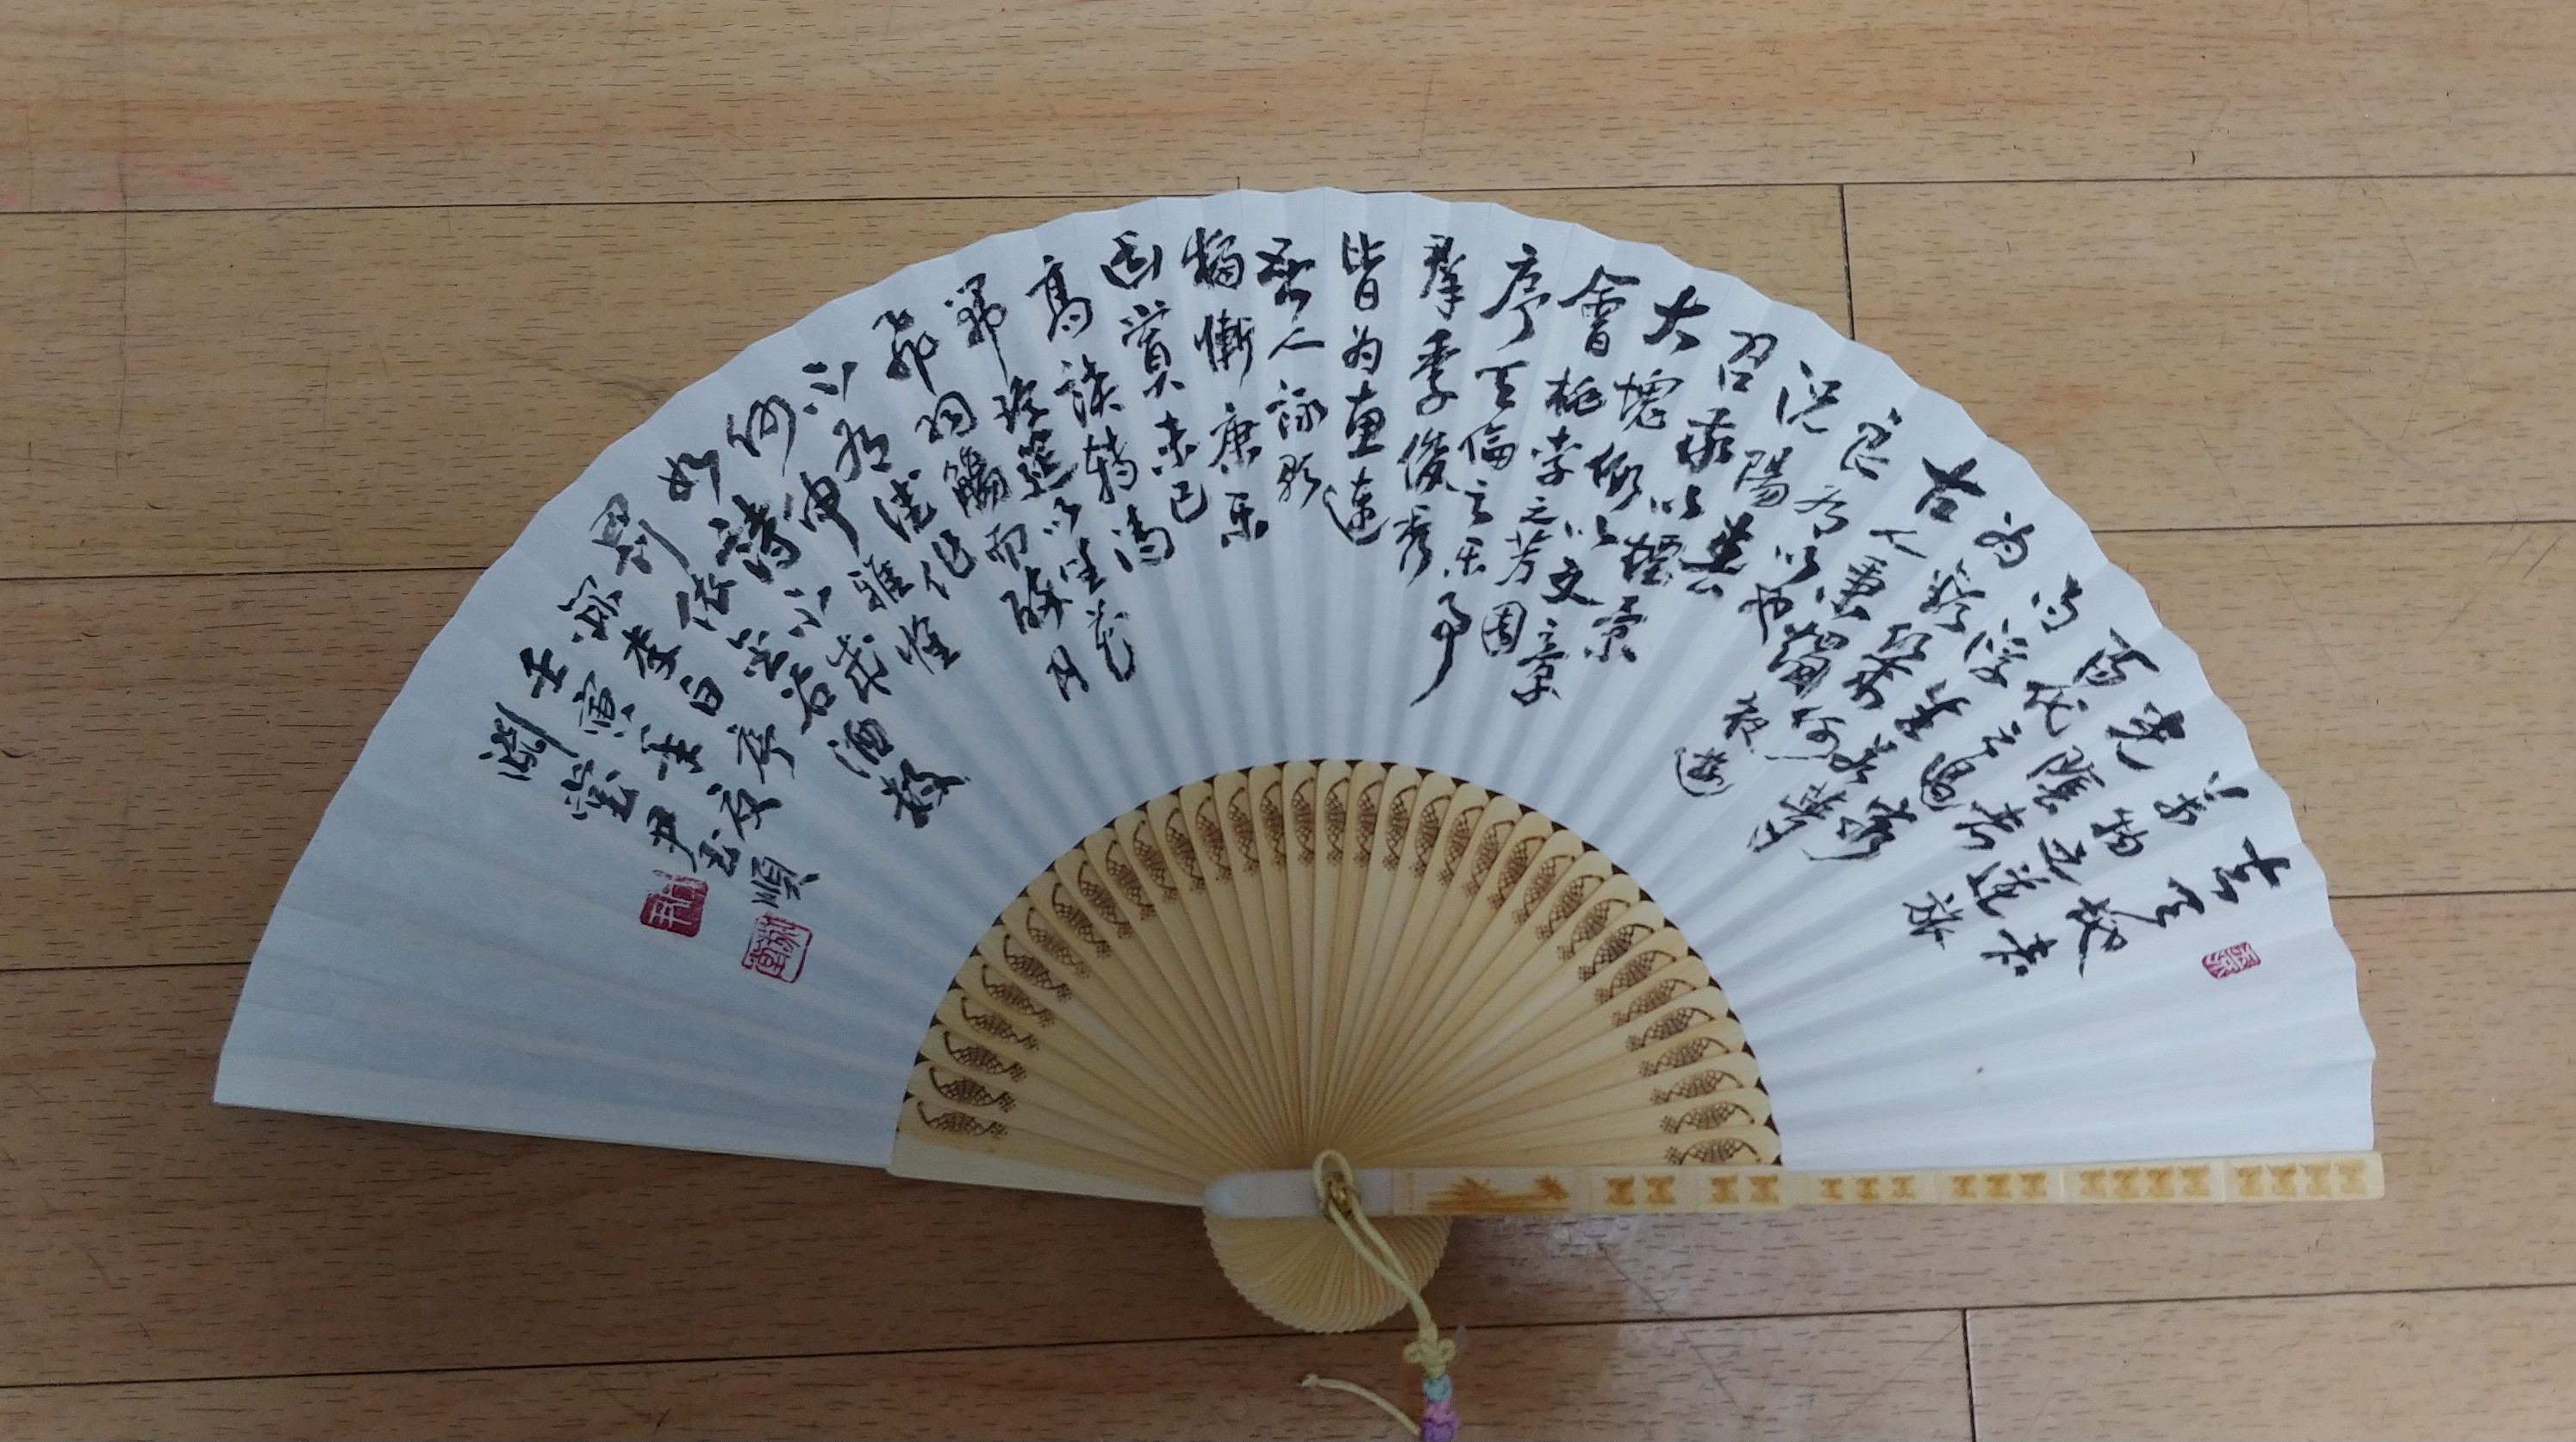 萬物之逆旅
光陰者
百代之過客
而浮生若夢
為歡幾何
古人秉燭夜遊
良有以也
況陽春
召我以煙景
大塊假以文章
會桃李之芳園
序天倫之樂事
群季俊秀
皆為惠連
吾人詠歌
獨慚康樂
幽賞未已
高談轉清
開瓊筵以坐花
飛羽觴而醉月
不有佳作
何申雅懷
如詩不成
罰依金谷酒數
李白序
壬寅年
淵堂尹玉順